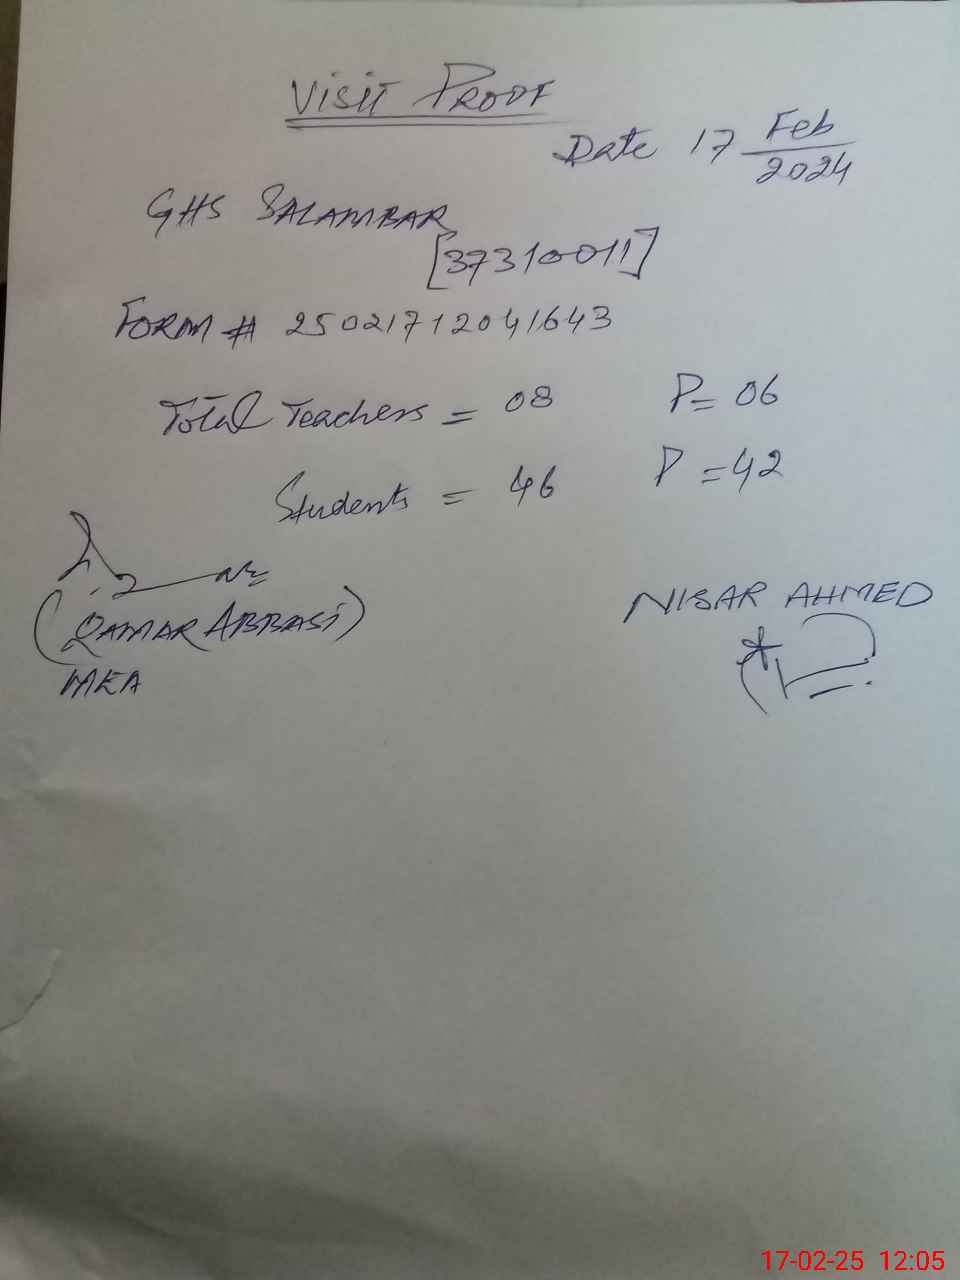 Visit Proof
Date 17 Feb
2024
GHS SALAMBAR
[37310011]
Form # 25021712041643
Total Teachers = 08 P = 06
Students = 46 P = 42
(QAMAR ABBASI)
MEA
NISAR AHMED
17-02-25 12:05